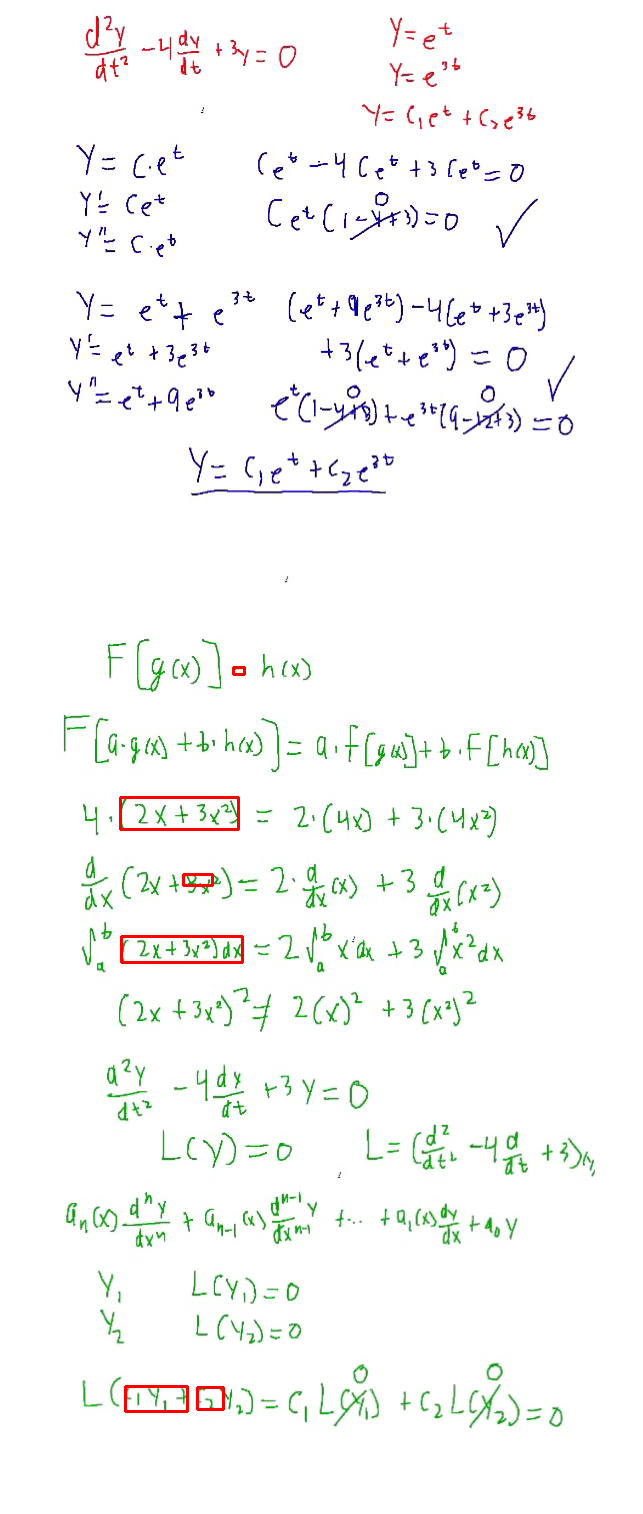 d²y/dt² - 4 dy/dt + 3y = 0
y = e^t
y = e^3t
y = c₁e^t + c₂e^3t
y = c·e^t
Ce^t - 4Ce^t + 3Ce^t = 0
y' = Ce^t
Ce^t(1-4+3) = 0 ✓
0
y'' = C·e^t
y = e^t + e^3t
(e^t + 9e^3t) - 4(e^t + 3e^3t)
y' = e^t + 3e^3t
+3(e^t + e^3t) = 0 ✓
y'' = e^t + 9e^3t
e^t(1-4+3) + e^3t(9-12+3) = 0
0 0
y = c₁e^t + c₂e^3t
F[g(x)] h(x)
F[a·g(x) + b·h(x)] = a·F[g(x)] + b·F[h(x)]
4·(2x + 3x²) = 2·(4x) + 3·(4x²)
d/dx (2x + 3x²) = 2·d/dx(x) + 3 d/dx(x²)
∫_a^b (2x + 3x²)dx = 2∫_a^b x dx + 3∫_a^b x²dx
(2x + 3x²)² ≠ 2(x)² + 3(x²)²
d²y/dt² - 4 dy/dt + 3y = 0
L(y) = 0
L = (d²/dt² - 4 d/dt + 3)y
aₙ(x) dⁿy/dxⁿ + aₙ₋₁(x) dⁿ⁻¹y/dxⁿ⁻¹ + ... + a₁(x) dy/dx + a₀y
y₁ L(y₁) = 0
y₂ L(y₂) = 0
L(c₁y₁ + c₂y₂) = c₁L(y₁) + c₂L(y₂) = 0
0 0